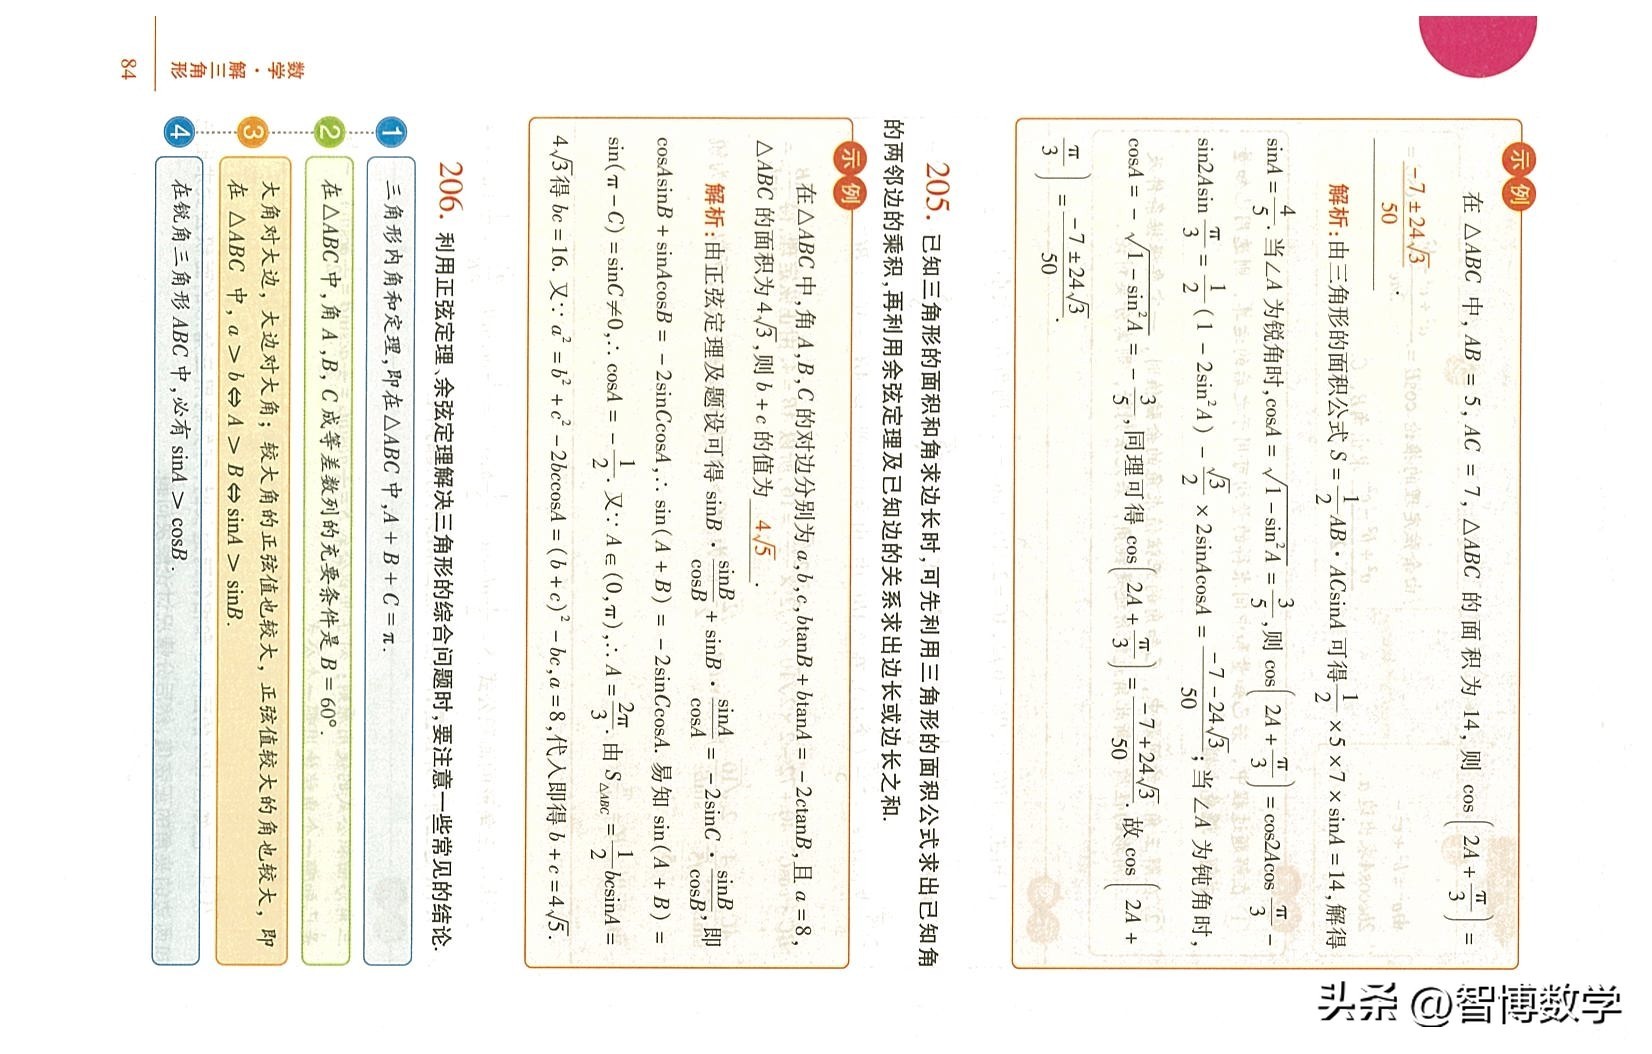 示例
在△ABC 中, AB = 5, AC = 7, △ABC 的面积为 14, 则 cos(2A + π/3) =
(-7±24√3)/50 .
解析:由三角形的面积公式 S = 1/2 AB · ACsinA 可得 1/2 × 5 × 7 × sinA = 14, 解得
sinA = 4/5. 当∠A 为锐角时, cosA = √(1 - sin²A) = 3/5, 则 cos(2A + π/3) = cos2Acos π/3 -
sin2Asin π/3 = 1/2 (1 - 2sin²A) - √3/2 × 2sinAcosA = (-7 - 24√3)/50; 当∠A 为钝角时,
cosA = -√(1 - sin²A) = -3/5, 同理可得 cos(2A + π/3) = (-7 + 24√3)/50. 故 cos(2A +
π/3) = (-7±24√3)/50.
205. 已知三角形的面积和角求边长时,可先利用三角形的面积公式求出已知角
的两邻边的乘积,再利用余弦定理及已知边的关系求出边长或边长之和.
示例
在△ABC 中,角 A,B,C 的对边分别为 a,b,c,btanB + btanA = -2ctanB,且 a = 8,
△ABC 的面积为 4√3,则 b + c 的值为 4√5 .
解析:由正弦定理及题设可得 sinB · sinB/cosB + sinB · sinA/cosA = -2sinC · sinB/cosB,即
cosAsinB + sinAcosB = -2sinCcosA,∴ sin(A + B) = -2sinCcosA. 易知 sin(A + B) =
sin(π - C) = sinC≠0,∴ cosA = -1/2. 又∵ A∈(0,π),∴ A = 2π/3. 由 S△ABC = 1/2 bcsinA =
4√3得 bc = 16. 又∵ a² = b² + c² - 2bccosA = (b + c)² - bc,a = 8,代入即得 b + c = 4√5.
206. 利用正弦定理、余弦定理解决三角形的综合问题时,要注意一些常见的结论.
1 三角形内角和定理,即在△ABC 中,A + B + C = π.
2 在△ABC 中,角 A,B,C 成等差数列的充要条件是 B = 60°.
3 大角对大边,大边对大角;较大角的正弦值也较大,正弦值较大的角也较大,即
在△ABC 中,a > b⇔A > B⇔sinA > sinB.
4 在锐角三角形 ABC 中,必有 sinA > cosB.
数学·解三角形
84
头条 @智博数学